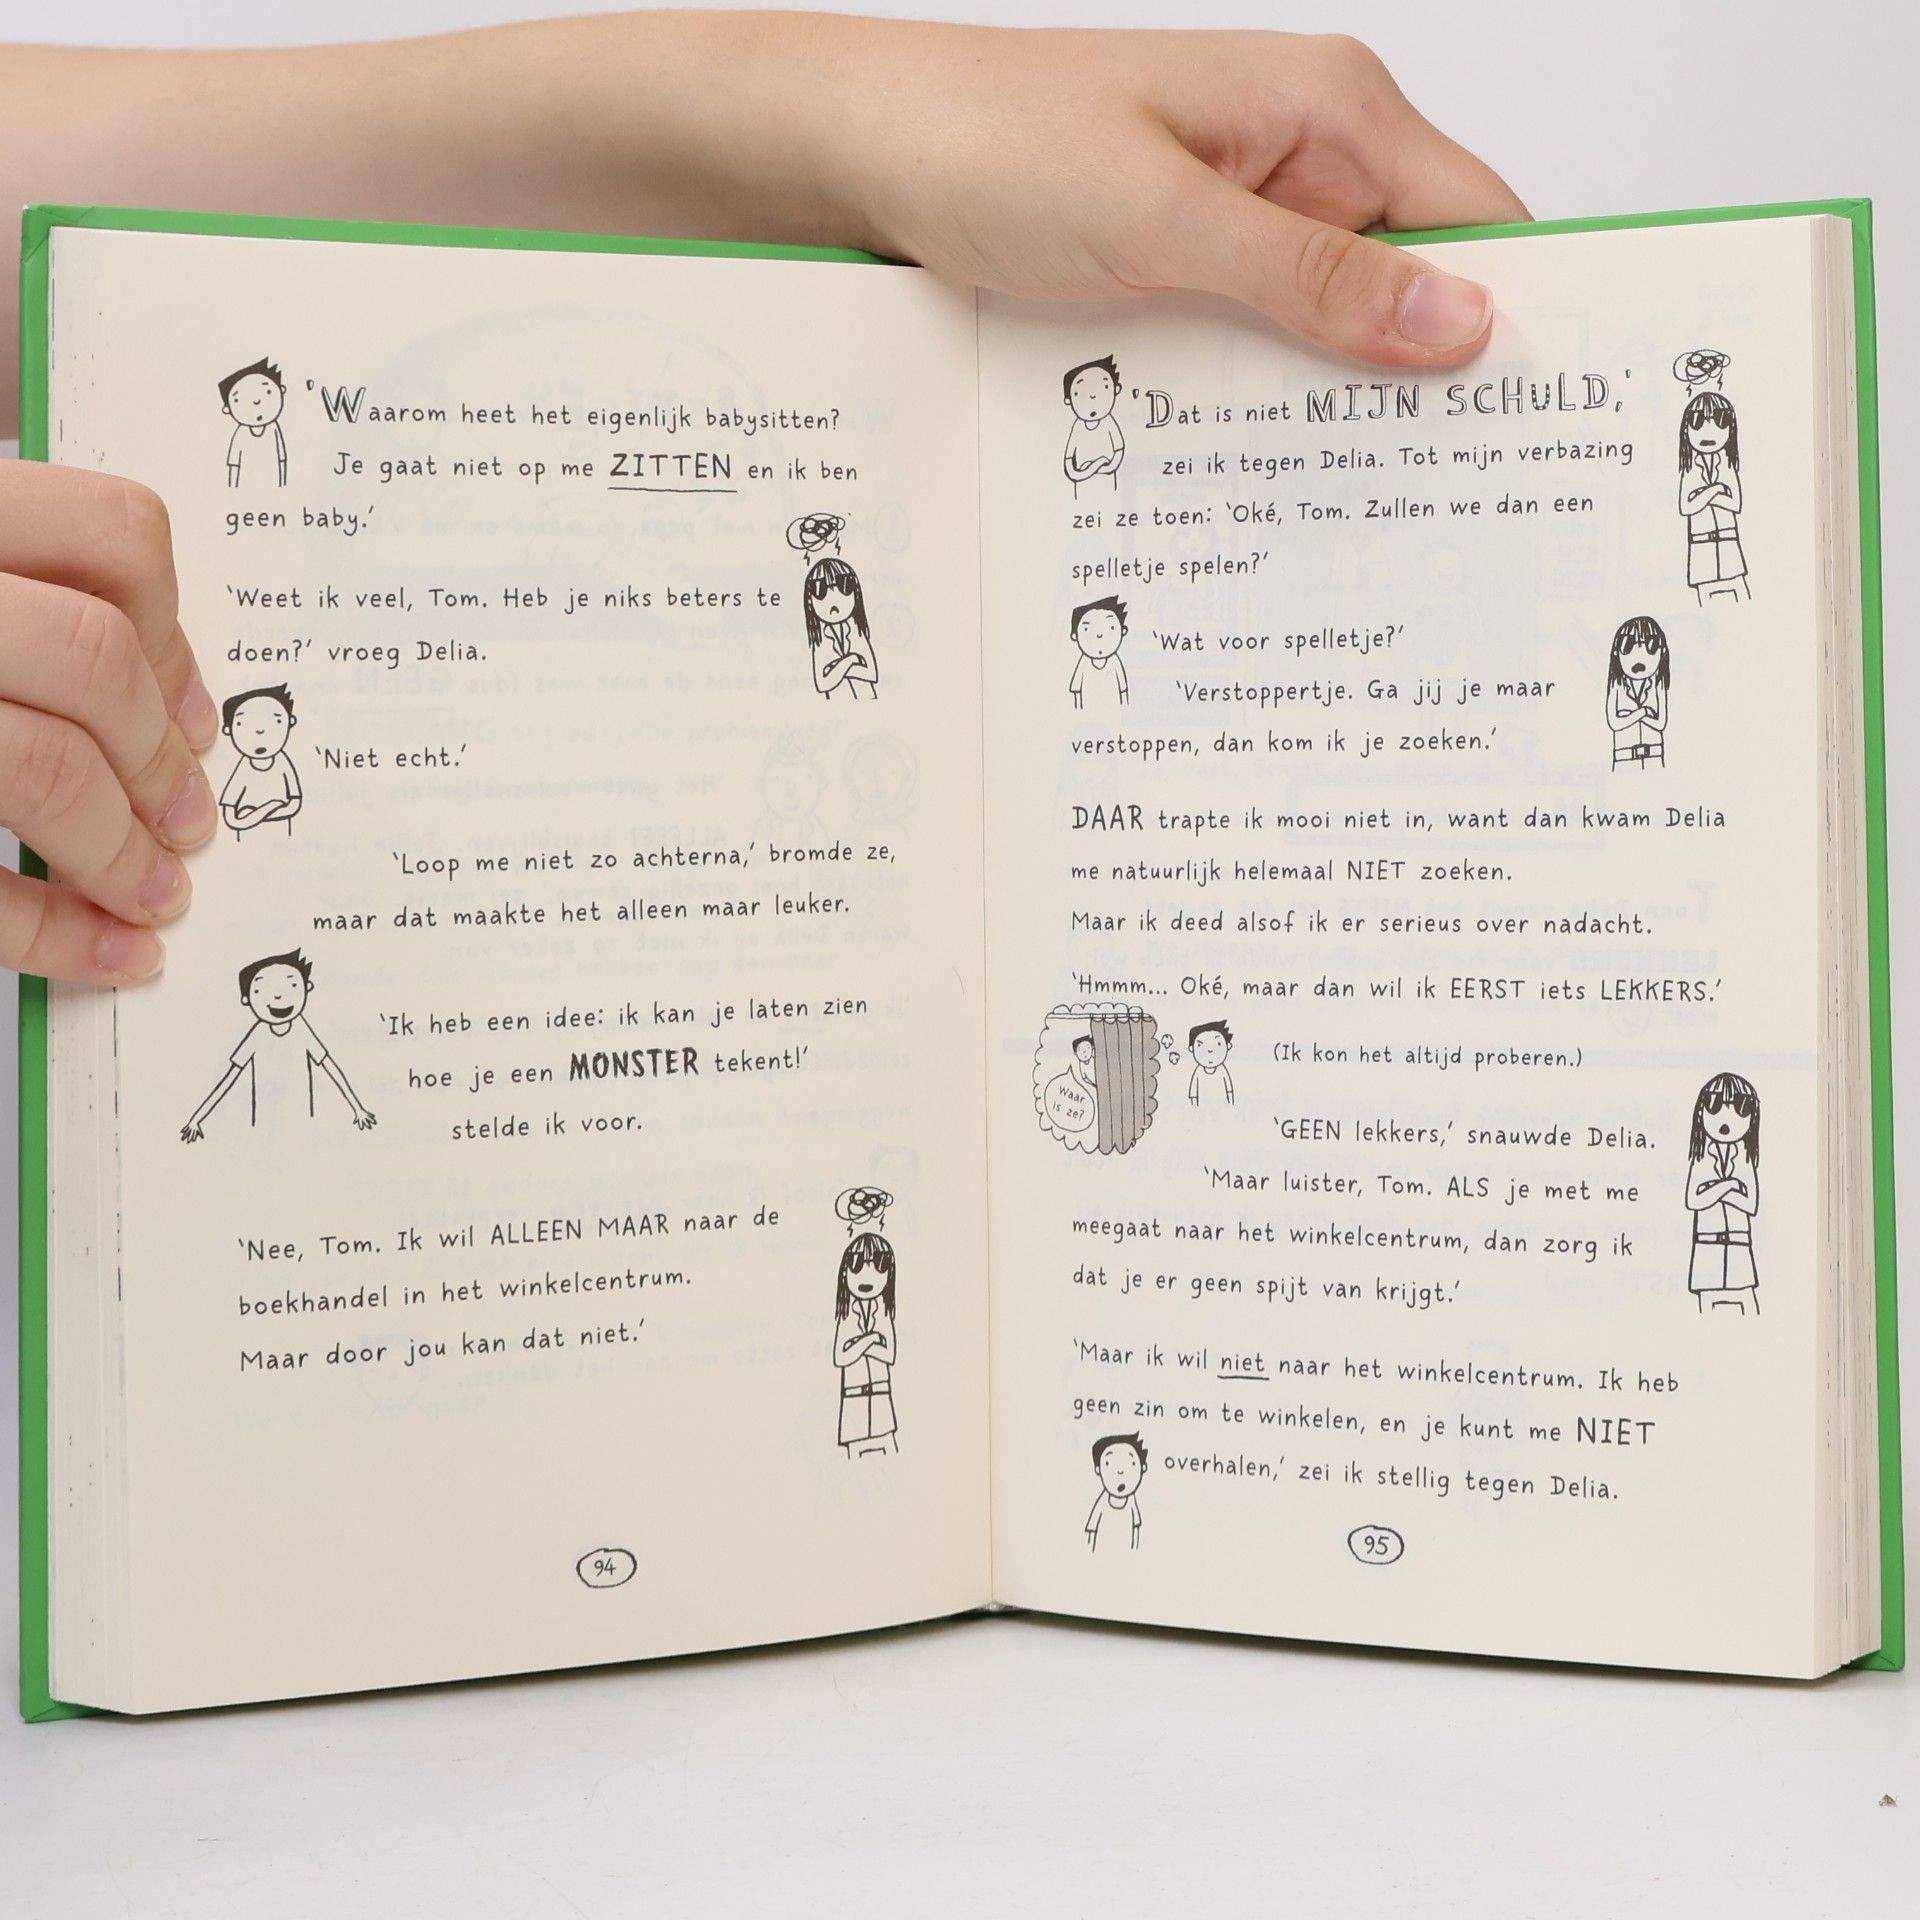 'Waarom heet het eigenlijk babysitten?
Je gaat niet op me ZITTEN en ik ben
geen baby.'
'Weet ik veel, Tom. Heb je niks beters te
doen?' vroeg Delia.
'Niet echt.'
'Loop me niet zo achterna,' bromde ze,
maar dat maakte het alleen maar leuker.
'Ik heb een idee: ik kan je laten zien
hoe je een MONSTER tekent!'
stelde ik voor.
'Nee, Tom. Ik wil ALLEEN MAAR naar de
boekhandel in het winkelcentrum.
Maar door jou kan dat niet.'
94
'Dat is niet MIJN SCHULD,'
zei ik tegen Delia. Tot mijn verbazing
zei ze toen: 'Oké, Tom. Zullen we dan een
spelletje spelen?'
'Wat voor spelletje?'
'Verstoppertje. Ga jij je maar
verstoppen, dan kom ik je zoeken.'
DAAR trapte ik mooi niet in, want dan kwam Delia
me natuurlijk helemaal NIET zoeken.
Maar ik deed alsof ik er serieus over nadacht.
'Hmmm... Oké, maar dan wil ik EERST iets LEKKERS.'
Waar
is ze?
(Ik kon het altijd proberen.)
'GEEN lekkers,' snauwde Delia.
'Maar luister, Tom. ALS je met me
meegaat naar het winkelcentrum, dan zorg ik
dat je er geen spijt van krijgt.'
'Maar ik wil niet naar het winkelcentrum. Ik heb
geen zin om te winkelen, en je kunt me NIET
overhalen,' zei ik stellig tegen Delia.
95